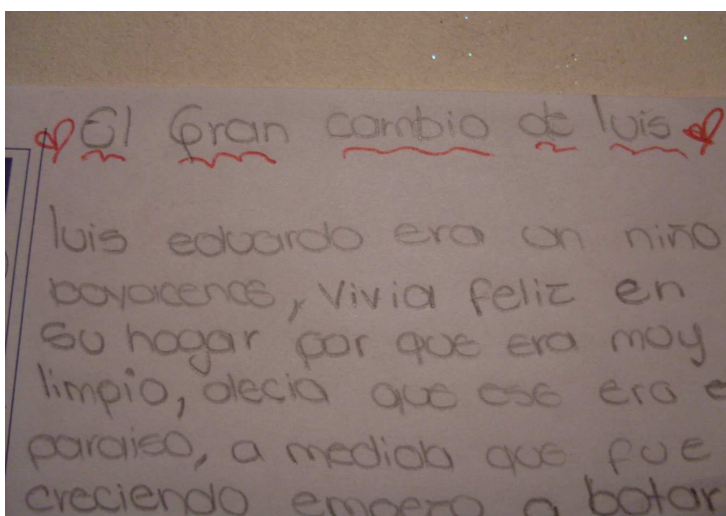 El Gran cambio de luis
luis eduardo era un niño
boyacences, vivia feliz en
su hogar por que era muy
limpio, decia que ese era e
paraiso, a medida que fue
creciendo empezo a botar